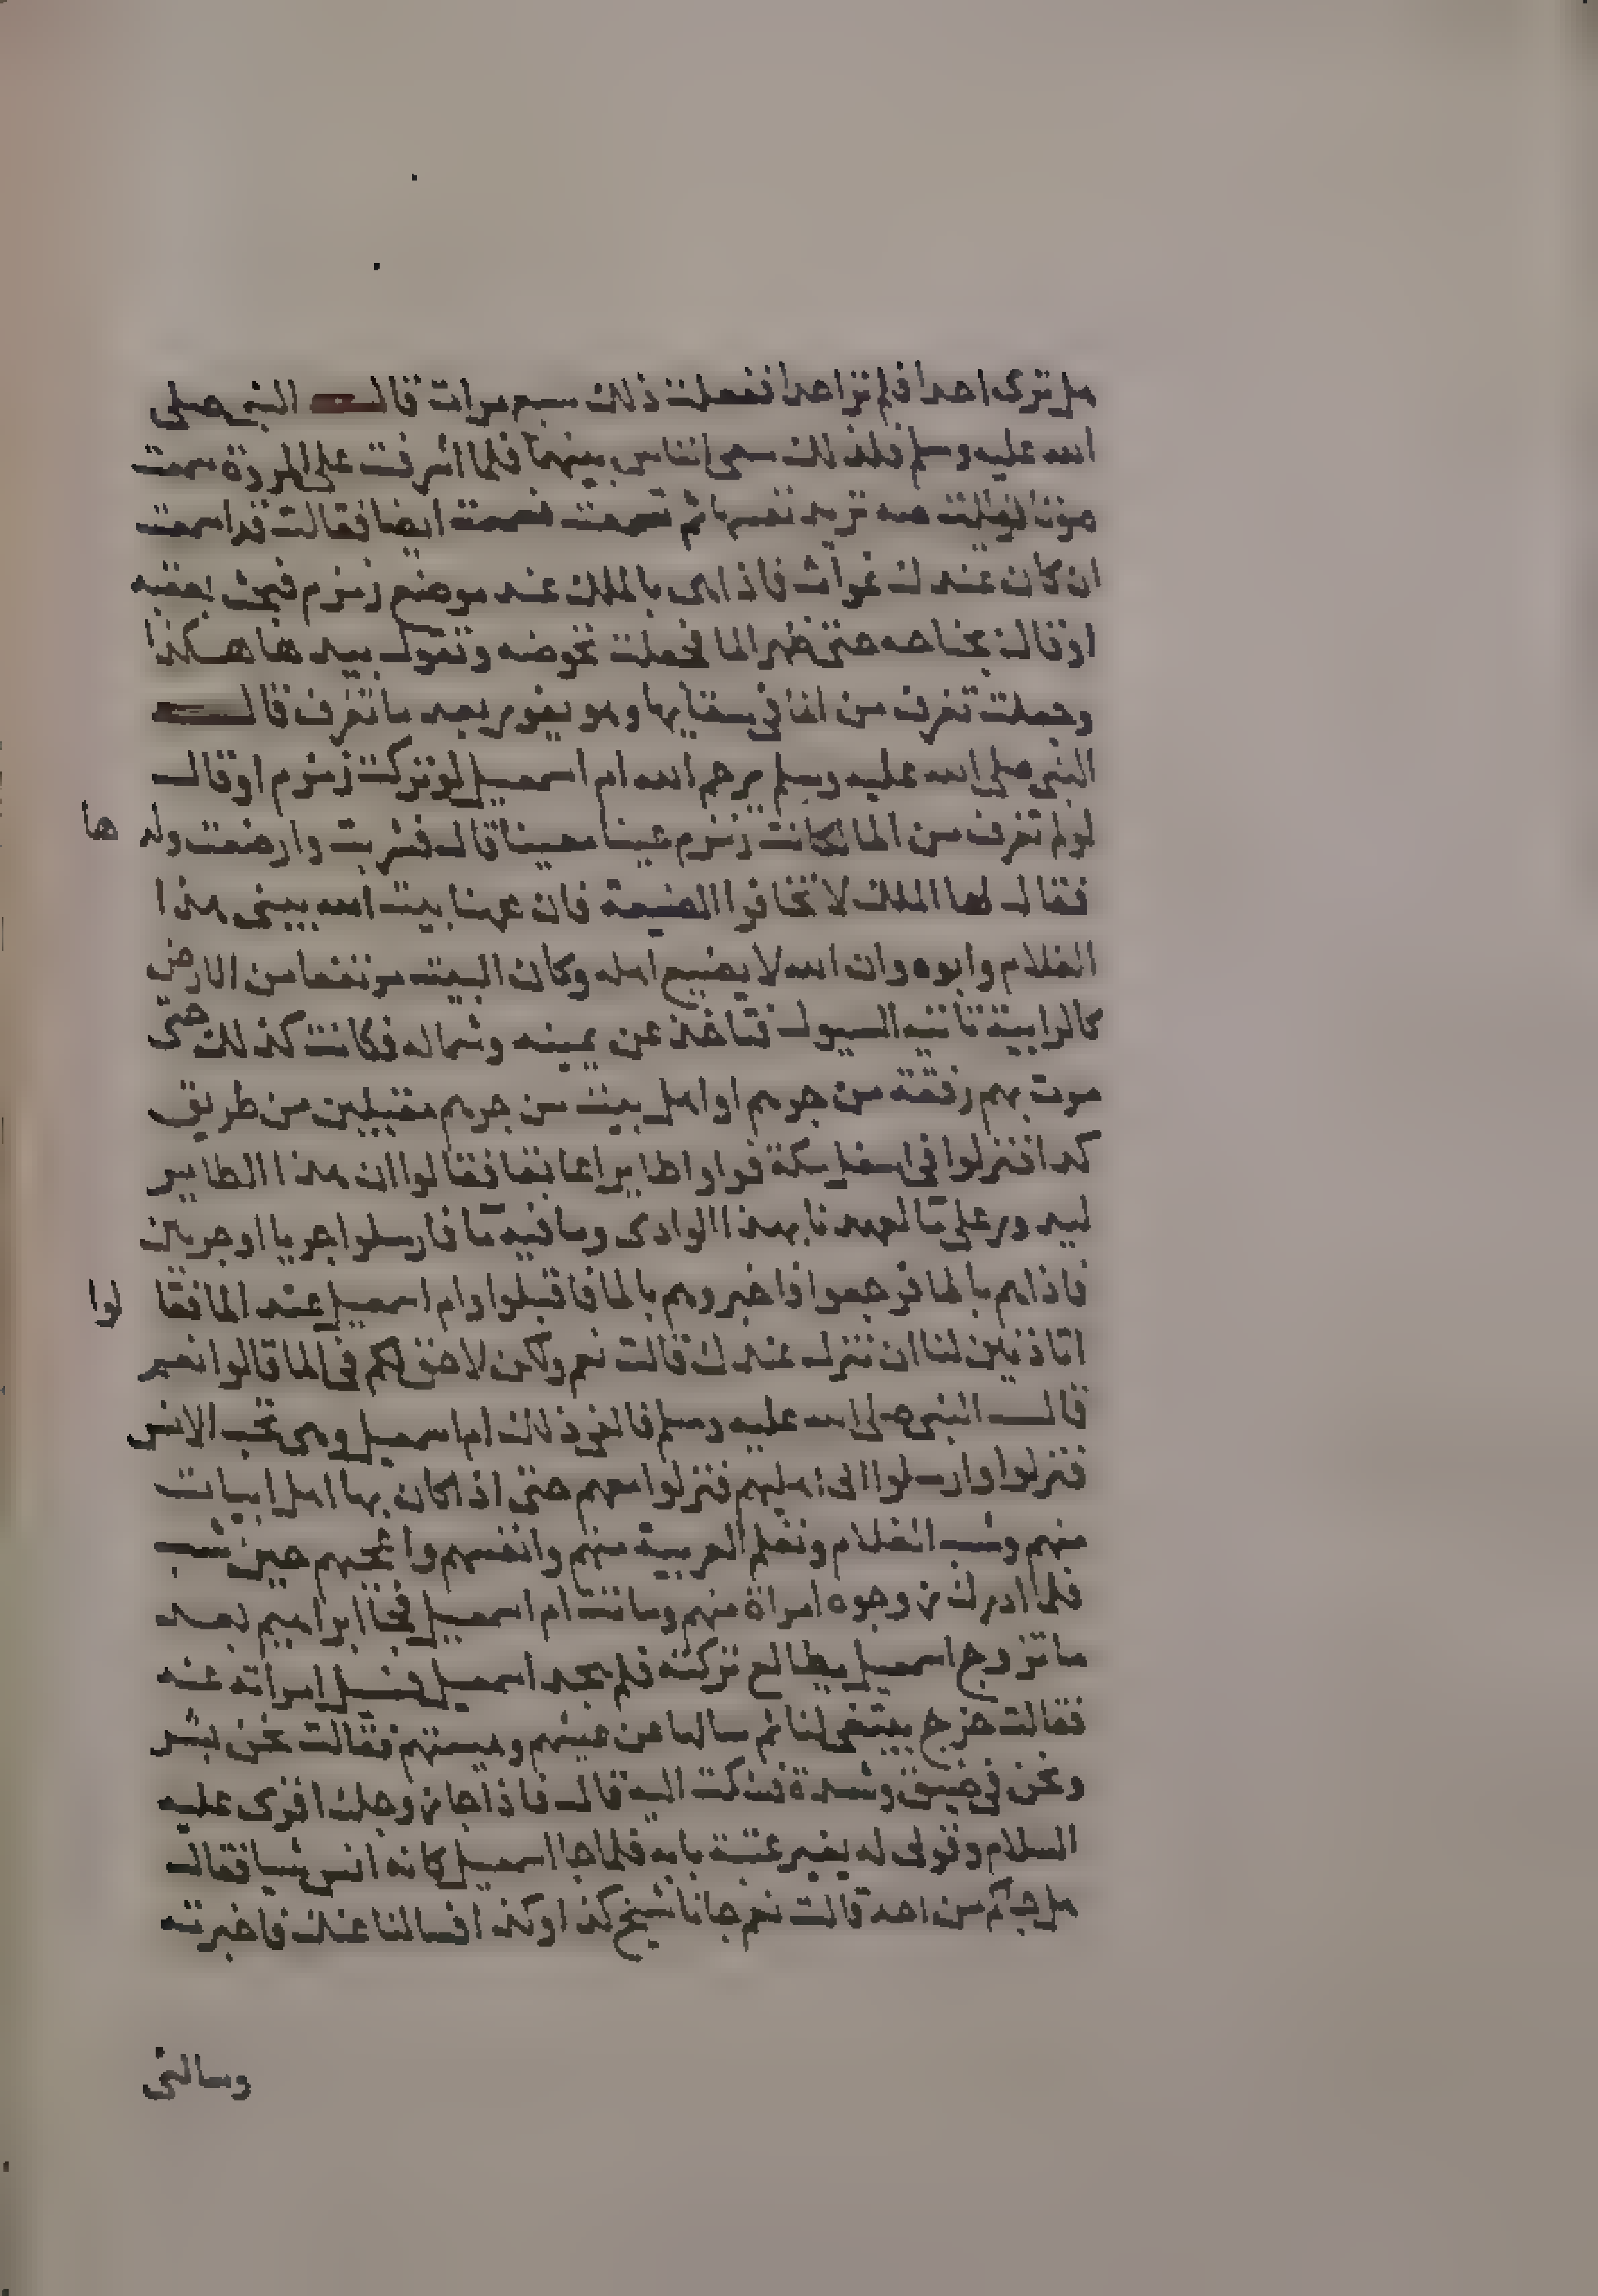 هل ترى احدا فلم تر احدا ففعلت ذلك سبع مرات قالــــ النبي صلى
الله عليه وسلم فلذلك سعى الناس بينهما فلما اشرفت على المروة سمعت
صوتا فقالت صه تريد نفسها ثم تسمعت فسمعت ايضا فقالت قد اسمعت
ان كان عندك غواث فاذا هى بالملك عند موضع زمزم فبحث بعقبه
او قال بجناحه حتى ظهر الما فجعلت تحوضه وتقول بيدها هكذا
وجعلت تغرف من الما في سقايها وهو يفور بعد ما تغرف قالـــ
النبي صلى الله عليه وسلم يرحم الله ام اسمعيل لو تركت زمزم او قال
لو لم تغرف من الما لكانت زمزم عينا معينا قال فشربت وارضعت ولدها
فقال لها الملك لا تخافوا الضيعة فان ههنا بيت الله يبنى هذا
الغلام وابوه وان الله لا يضيع اهله وكان البيت مرتفعا من الارض
كالرابية تاتيه السيول فتاخذ عن يمينه وشماله فكانت كذلك حتى
مرت بهم رفقة من جرهم او اهل بيت من جرهم مقبلين من طريق
كدا فنزلوا في اسفل مكة فراوا طايرا عايفا فقالوا ان هذا الطاير
ليدور على ما لعهدنا بهذا الوادى وما فيه ما فارسلوا جريا او جريين
فاذا هم بالما فرجعوا فاخبروهم بالما فاقبلوا وام اسمعيل عند الما فقالوا
اتاذنين لنا ان ننزل عندك قالت نعم ولكن لا حق لكم في الما قالوا نعم
قالـــ النبي صلى الله عليه وسلم فالفى ذلك ام اسمعيل وهى تحب الانس
فنزلوا وارسلوا الى اهليهم فنزلوا معهم حتى اذا كان بها اهل ابيات
منهم وشب الغلام وتعلم العربية منهم وانفسهم واعجبهم حين شب
فلما ادرك زوجوه امراة منهم وماتت ام اسمعيل فجا ابراهيم بعد
ما تزوج اسمعيل يطالع تركته فلم يجد اسمعيل فسيل امراته عنه
فقالت خرج يبتغى لنا ثم سالها عن عيشهم وهيئتهم فقالت نحن بشر
ونحن في ضيق وشدة فشكت اليه قال فاذا جا زوجك اقرى عليه
السلام وقولى له يغير عتبة بابه فلما جا اسمعيل كانه انس شيا فقال
هل جاكم من احد قالت نعم جانا شيخ كذا وكذا فسالنا عنك فاخبرته
وسالنى